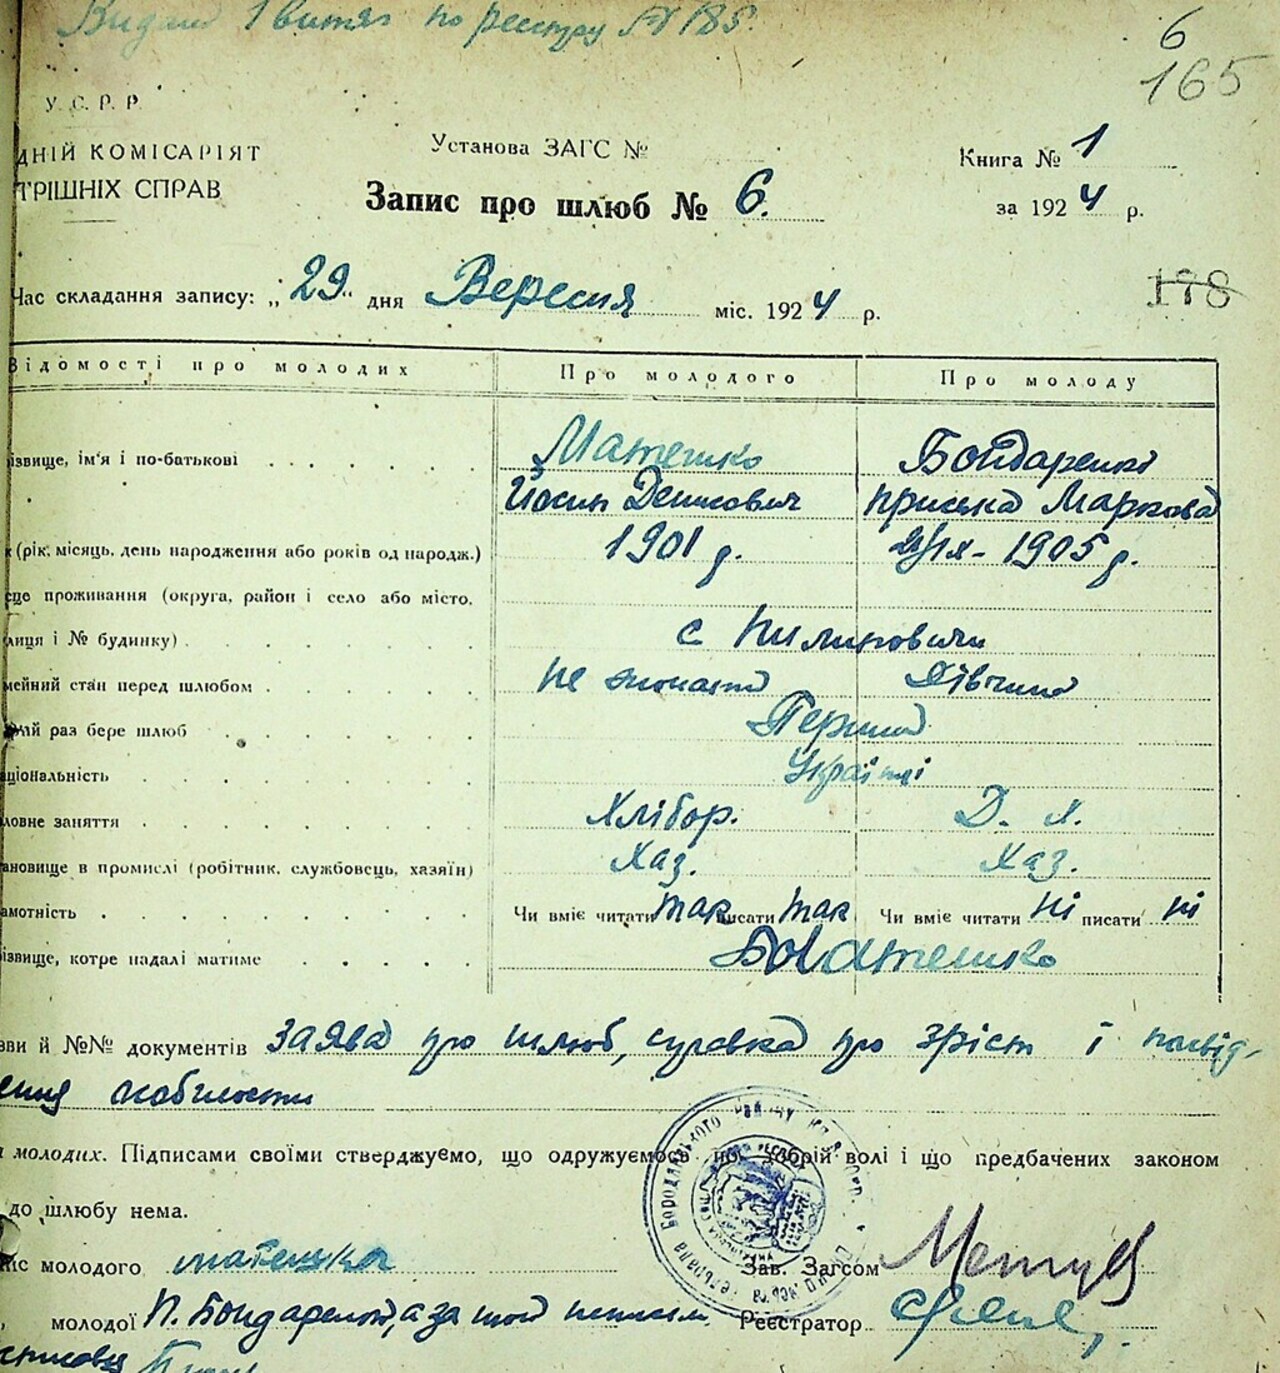 Видано 1 витяг по реєстру № 185.
6
165
У. С. Р. Р.
ДНІЙ КОМІСАРІЯТ
ТРІШНІХ СПРАВ
Установа ЗАГС №
Книга № 1
Запис про шлюб № 6.
за 1924 р.
Час складання запису: „29" дня Вересня міс. 1924 р.
178
Відомості про молодих Про молодого Про молоду
ізвище, ім'я і по-батькові Матешко Бондаренко
Йосип Денисович Приська Маркова
к (рік, місяць, день народження або років од народж.) 1901 р. 1905 р.
це проживання (округа, район і село або місто,
лиця і № будинку) с Пилиповичи
мейний стан перед шлюбом не жонатий Дівчина
ий раз бере шлюб Перший
аціональність Українці
ловне заняття Хлібор. Д. х.
ановище в промислі (робітник, службовець, хазяїн) Хаз. Хаз.
амотність Чи вміє читати так писати так Чи вміє читати ні писати ні
ізвище, котре надалі матиме Матешко
зви й №№ документів Заява про шлюб, справка про зріст і посвід-
ення особистости
молодих. Підписами своїми стверджуємо, що одружуємось по добрій волі і що предбачених законом
до шлюбу нема.
ис молодого матешко
Зав. Загсом
молодої П. Бондаренко, а за неї
Реєстратор